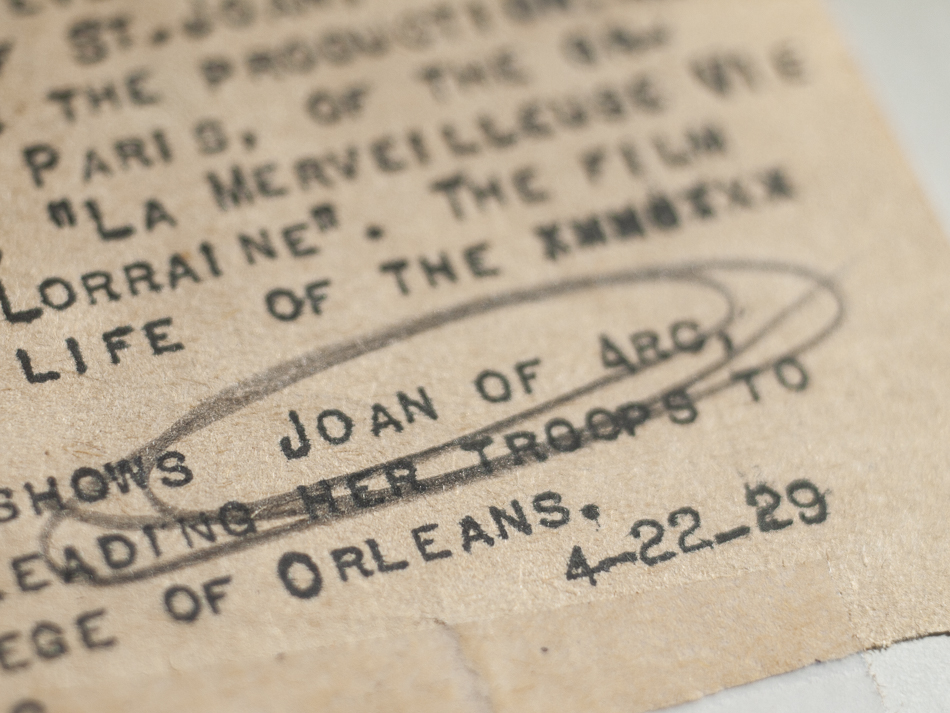 ST. JOAN
THE PRODUCTION
PARIS, OF THE
"LA MERVEILLEUSE VIE
LORRAINE". THE FILM
LIFE OF THE
SHOWS JOAN OF ARC,
EADING HER TROOPS TO
EGE OF ORLEANS.
4-22-29